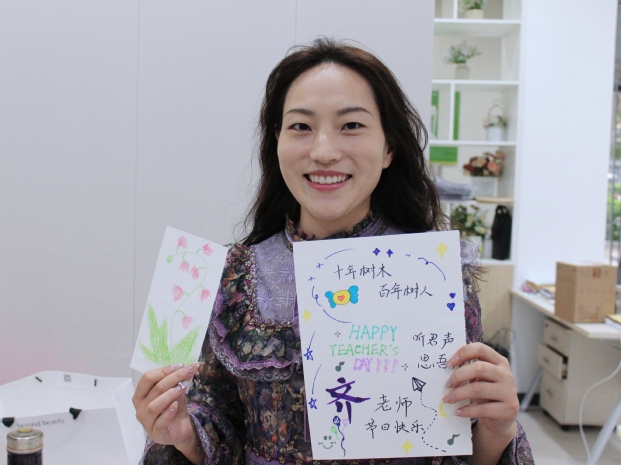 十年树木
百年树人
HAPPY
TEACHER'S
DAY!!!
听君声
思吾
齐
老师
节日快乐
beyond beauty